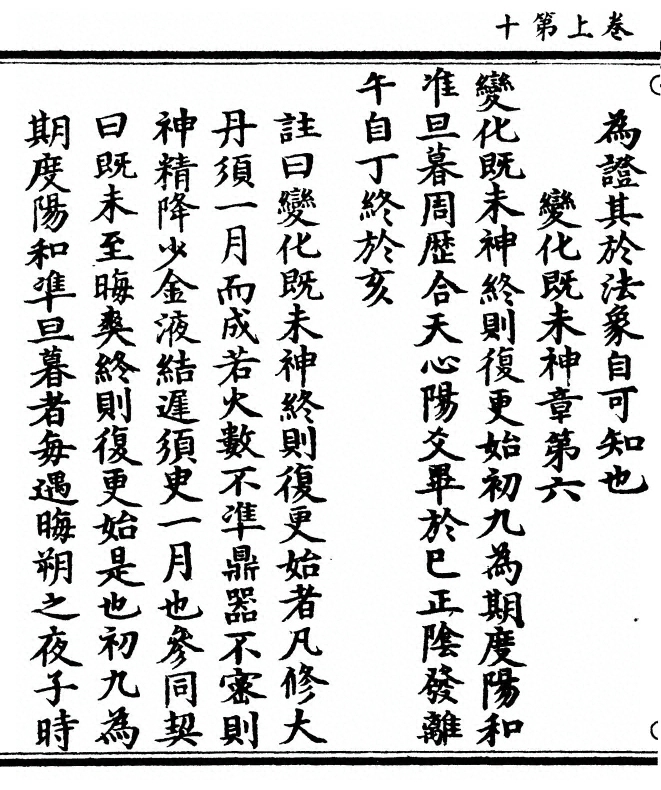 卷上第十
為證其於法象自可知也
變化既未神章第六
變化既未神終則復更始初九為期度陽和
准旦暮周歷合天心陽爻畢於巳正陰發離
午自丁終於亥
註曰變化既未神終則復更始者凡修大
丹須一月而成若火數不準鼎器不密則
神精降少金液結遲須史一月也參同契
曰既未至晦爽終則復更始是也初九為
期度陽和準旦暮者每遇晦朔之夜子時